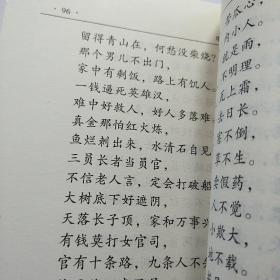 · 96 ·
留得青山在，何愁没柴烧？
那个男儿不出门，
家中有剩饭，路上有饥人。
一钱逼死英雄汉，
难中好救人，好人多落难
真金那怕红火炼，
鱼烂刺出来，水清石自见
三员长者当员官，
不信老人言，定会打破船
大树底下好遮阴，
天落长子顶，家和万事兴
有钱莫打女官司，
官有十条路，九条人不
苦瓜心，
内小人。
就是雨，
不明理。
无上霜，
去日长。
客不倒，
草不生。
卖假药，
人不觉。
小欺大，
地不载。